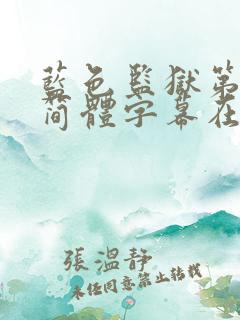 藍色監獄第
簡體字幕在
張溫靜
未经同意禁止转载